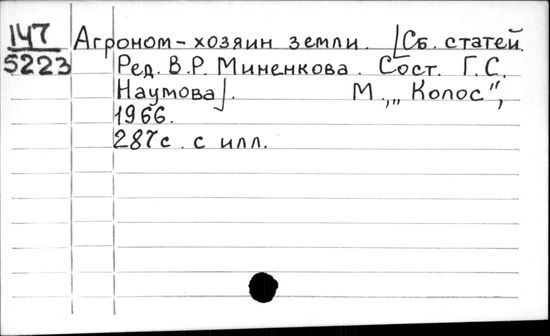 147 Агроном - хозяин земли. [Сб. статей.
5223 Ред. В.Р. Миненкова. Сост. Г.С.
Наумова]. М., „Колос",
1966.
287с. с илл.